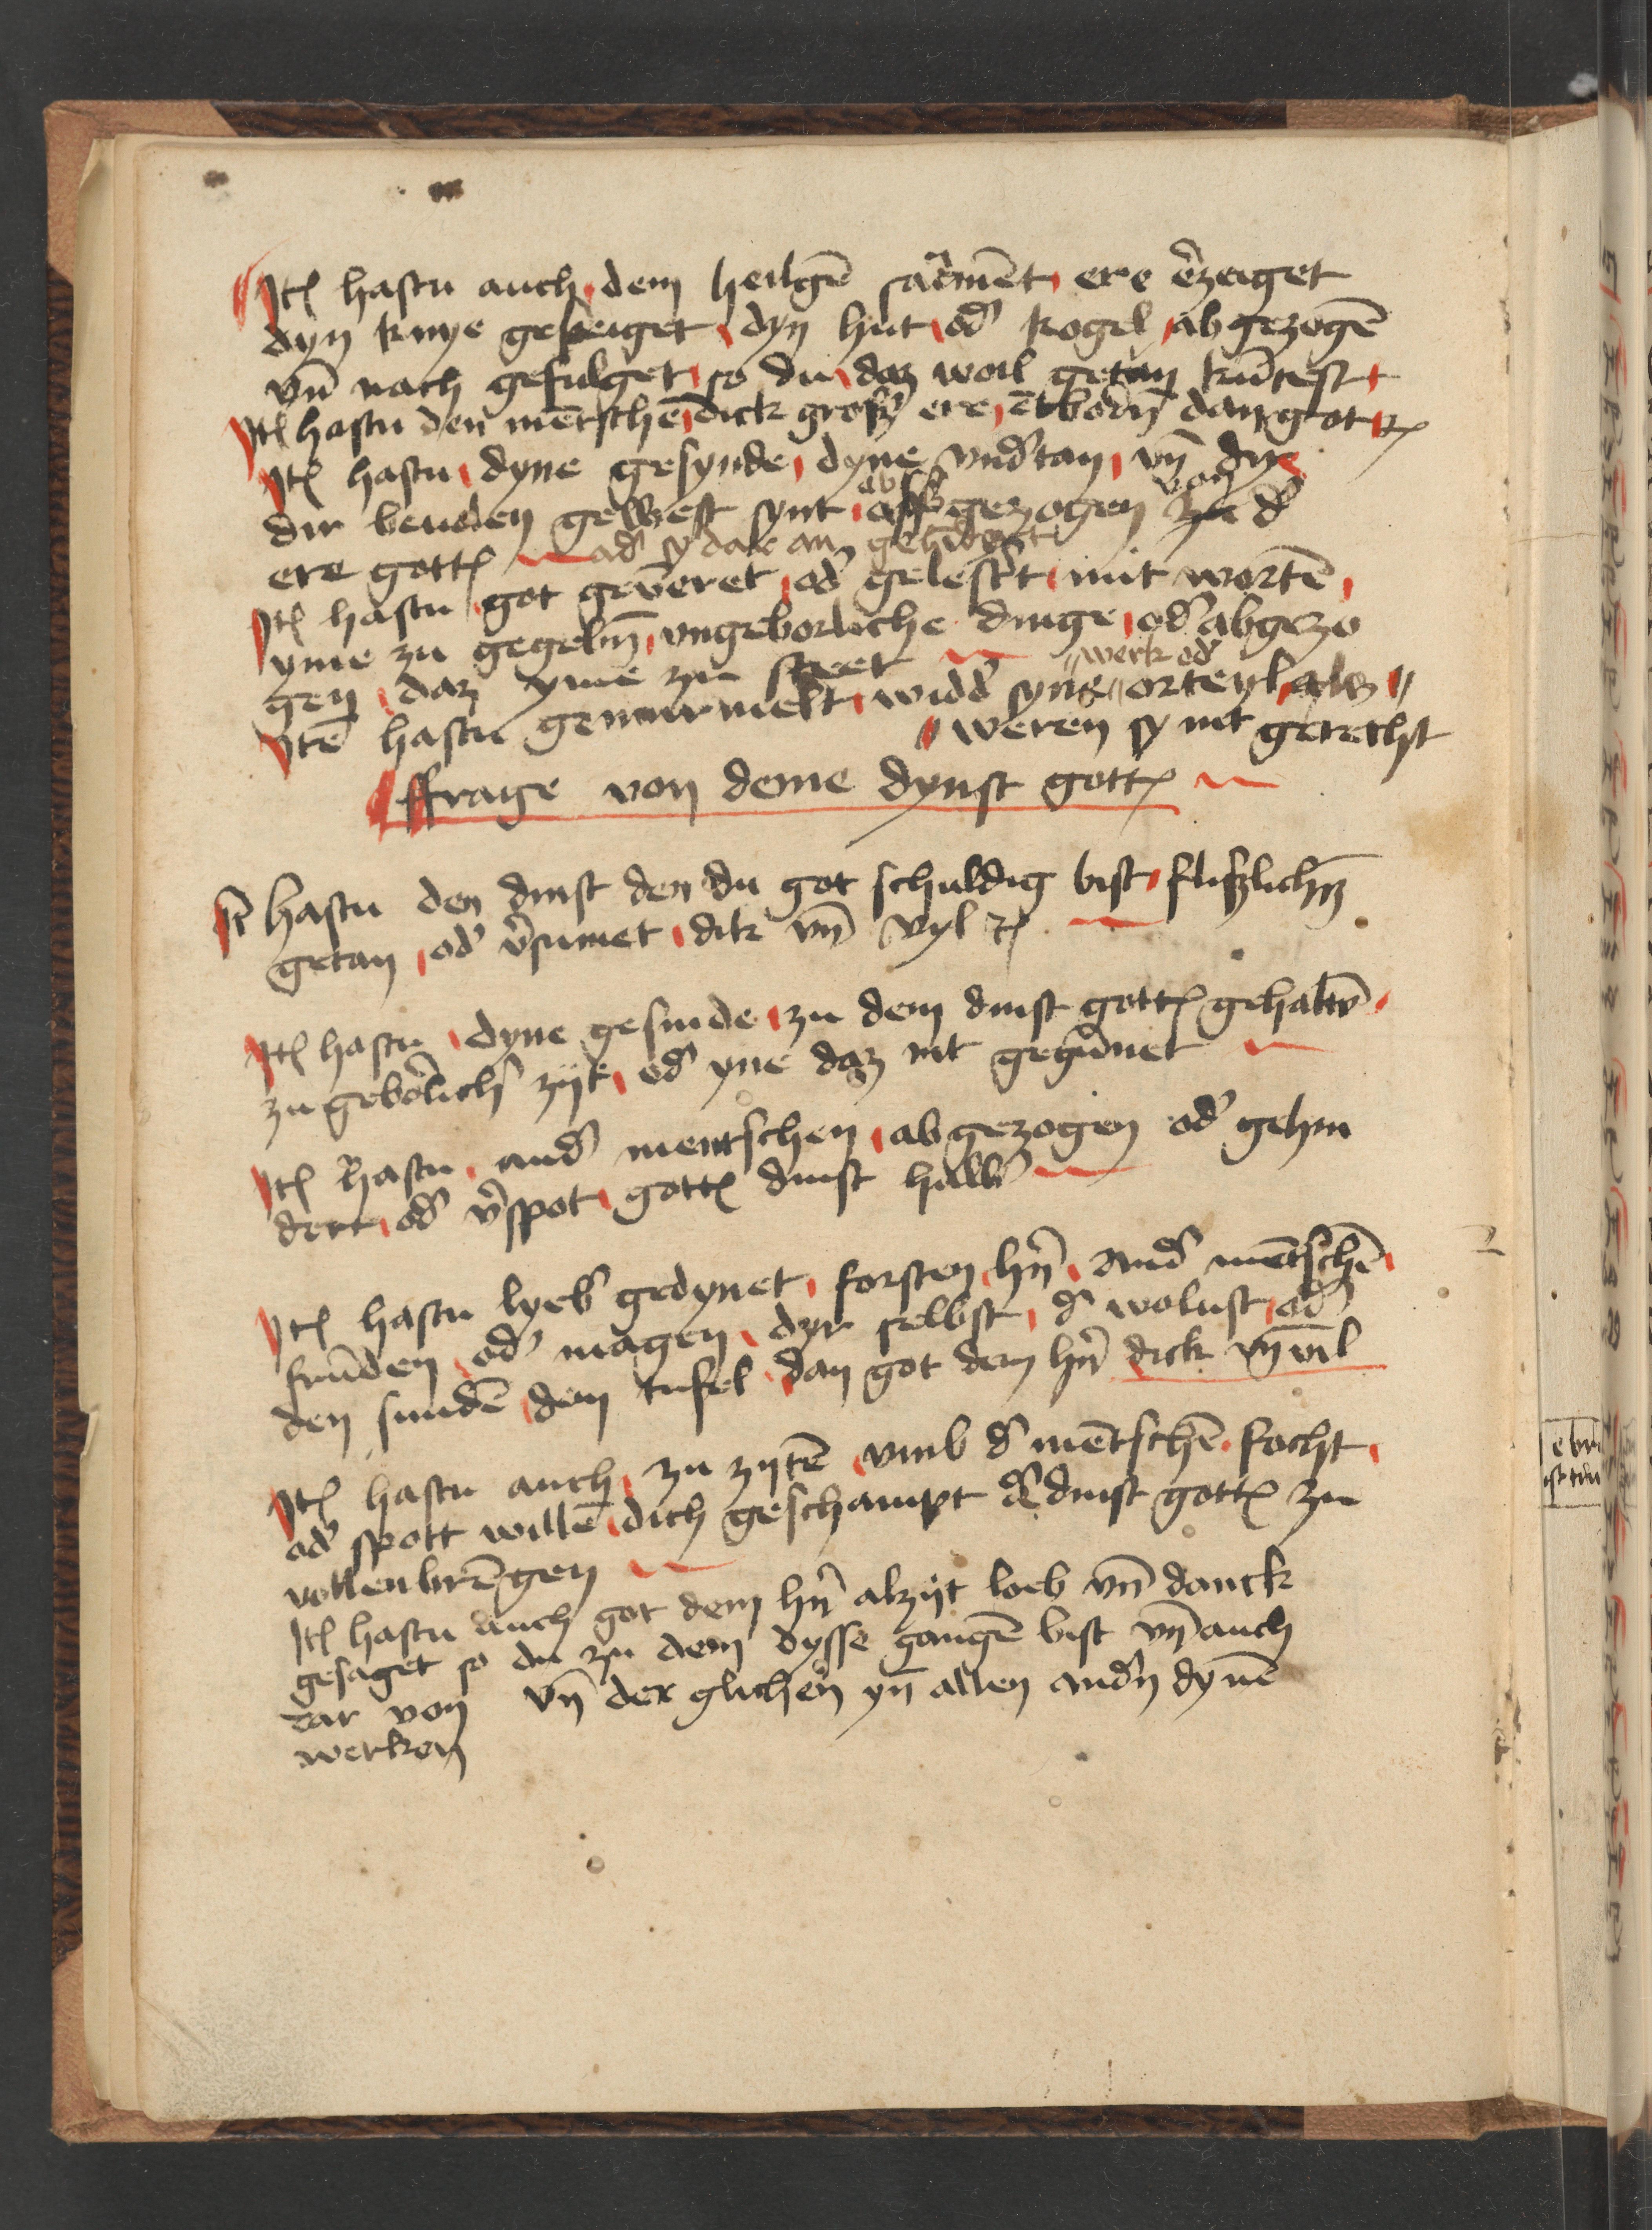 Itē hastu auch dem heilgē sacͣmēt ere eͬzeiget
dyn knye geneiget dyn hut od͛ kogel ab gezogē
vn̄ nach gefulget so du daz woil getan kūtest
Itē hastu den mētschē dick groß ere ētbodn̄ dan got ꝛc
Itē hastu dyne gesynde dyne vnd͛tan vn̄ dye
dir beuolen gewest synt ab gezogen von d͛
ere gottꝭ ad͛ sy dar an gehindert
Itē hastu got geūeret od͛ gelestͬt mit wortē
yme zu gegebn̄ vngeborliche dinge od͛ abgezo
gen daz yme zu steet
Itē hastu gemurmelt widd͛ syne werk od͛ orteyl als
weren sy nit gerecht
ffrage von deme dynst gottꝭ
Itē hastu den dinst den du got schuldig bist flißlichn̄
getan od͛ vͬsumet dik vn̄ vyl ꝛc
Itē hastu dyne gesinde zu dem dinst gottꝭ gehaltē
zu geborlich͛ zijt od͛ yne daz nit gegūnet
Itē hastu and͛ mentschen ab gezogen od͛ gehin
dert od͛ vͬspot gottꝭ dinst halb͛
Itē hastu lyeb͛ gedynet forsten hn̄ and͛ mētschē
frūden od͛ magen dyr selbst d͛ wolust od͛
den sundē dem tufel dan got dem hn̄ dick vn̄ vil
Itē hastu auch zu zijtē vmb d͛ mētschē focht
od͛ spott willē dich geschampt d͛ dinst gottꝭ zu
vollenbrēgen
Itē hastu auch got dem hn̄ alzijt loeb vn̄ danck
gesaget so du zu dem dysse gangē bist vn̄ auch
dar von vn̄ der glichen yn̄ allen andn̄ dynē
werken